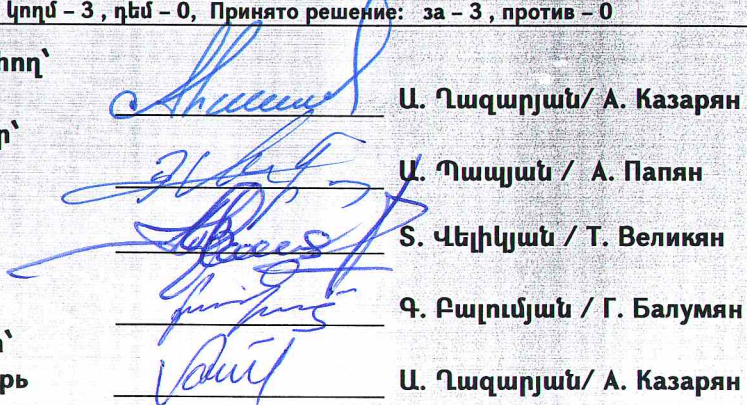 կողմ – 3 , դեմ – 0, Принято решение: за – 3 , против – 0
հող՝
Ա. Ղազարյան/ А. Казарян
ր՝
Ա. Պապյան / А. Папян
Տ. Վելիկյան / Т. Великян
Գ. Բալումյան / Г. Балумян
ր՝
рь Ա. Ղազարյան/ А. Казарян